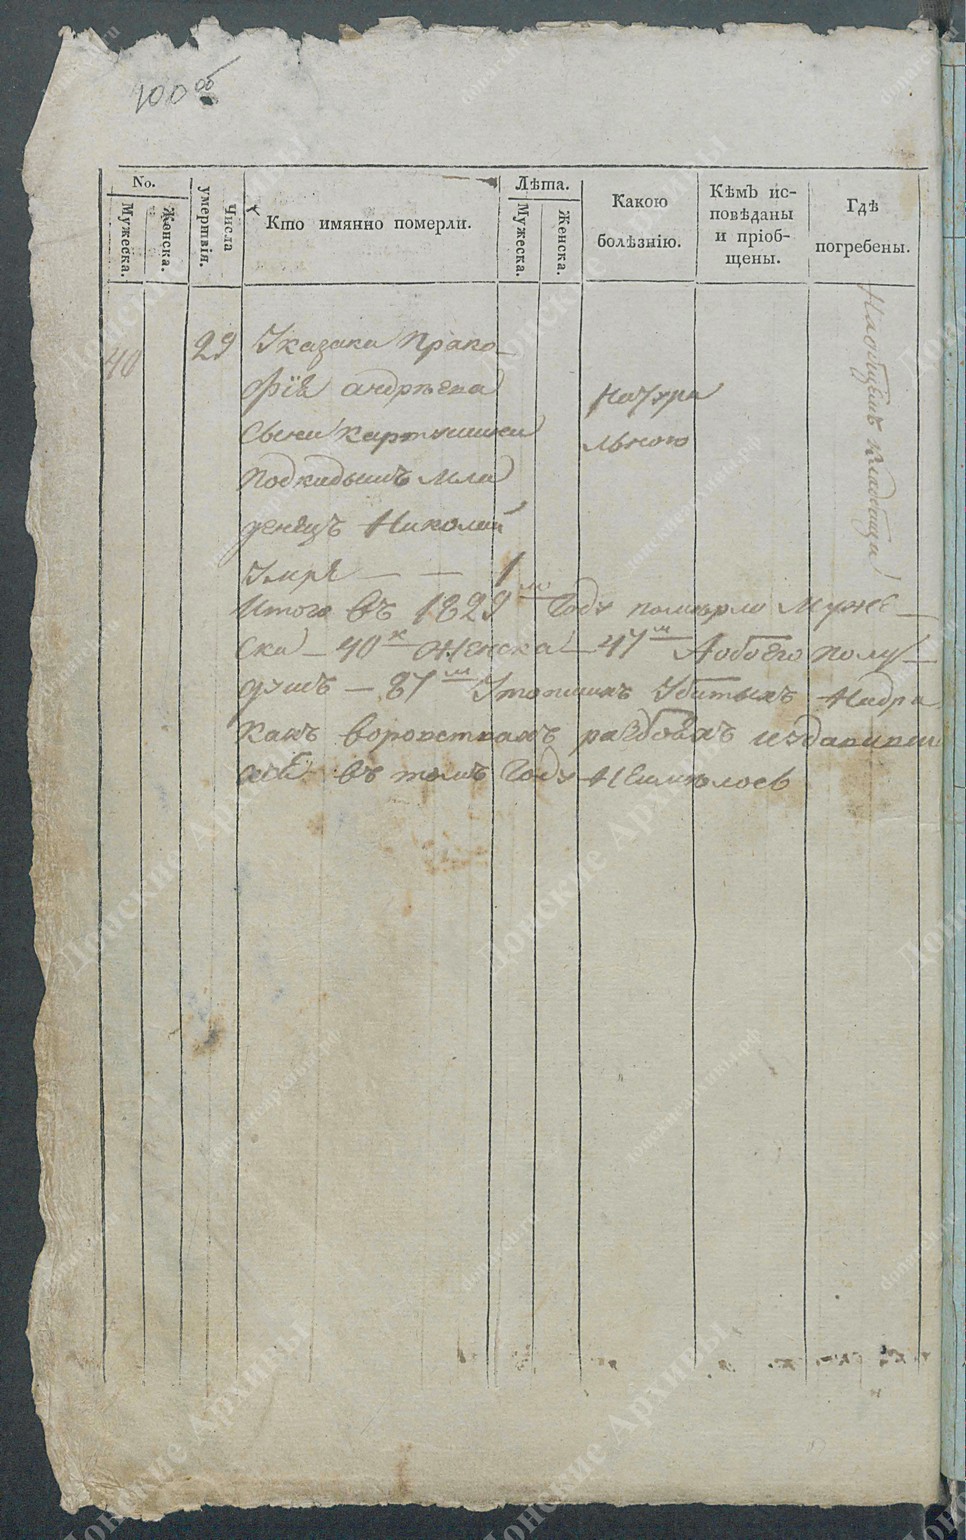 100 об
No.
Мужеска.
Женска.
Числа умертвія.
Кто имянно померли.
Лѣта.
Мужеска.
Женска.
Какою
болѣзнію.
Кѣмъ ис-
повѣданы
и пріоб-
щены.
Гдѣ
погребены.
40
29
Указака Прако
фія андрѣева
сына
подкидышъ мла
денецъ Николай
Умре — — 1
натура
льною
На общемъ кладбище
Итого въ 1829 м Году помѣрло Муже
ска — 40 к Женска — 47 м Аобоего полу —
душъ — 87 м Утопшихъ Убитыхъ Надра
кахъ воровствахъ разбояхъ
въ томъ Году Неимѣлось